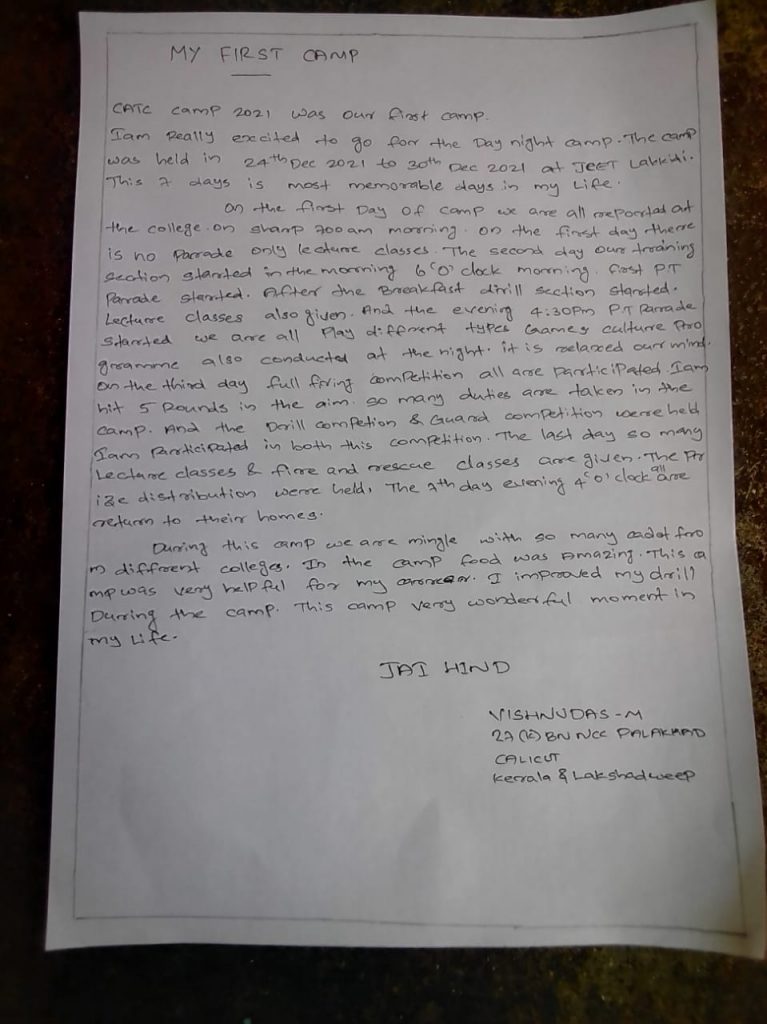 MY FIRST CAMP
CATC camp 2021 was our first camp.
Iam Really excited to go for the Day night camp. The camp
was held in 24th Dec 2021 to 30th Dec 2021 at JCET Lakkidi.
This 7 days is most memorable days in my Life.
On the first Day of camp we are all reported at
the college on sharp 700am morning. on the first day there
is no Parade only lecture classes. The second day our training
section started in the morning 6 'O' clock morning. first PT
Parade started. After the Breakfast drill section started.
Lecture classes also given. And the evening 4:30Pm P.T Parade
started we are all Play diffrent types Games culture Pro
gramme also conducted at the night. it is relaxed our mind.
on the third day full firing competition all are Participated. Iam
hit 5 Rounds in the aim. so many duties are taken in the
camp. And the Drill competion & Guard competition were held
Iam Participated in both this competition. The last day so many
Lecture classes & fire and rescue classes are given. The Pr
ize distribution were held, The 7th day evening 4 'O' clock all are
return to their homes.
During this camp we are mingle with so many cadet fro
m different colleges. In the camp food was Amazing. This ca
mp was very helpful for my carrear. I improved my drill
During the camp. This camp very wonderful moment in
my Life.
JAI HIND
VISHNUDAS-M
27 (K) BN NCC PALAKKAD
CALICUT
Kerala & Lakshadweep